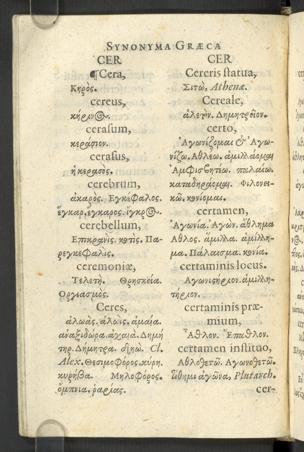 SYNONYMA GRÆCA
CER
¶Cera,
Κηρός.
cereus,
κήρινος.
cerasum,
κεράσιον.
cerasus,
ἡ κερασός.
cerebrum,
ἀκαρός. Εγκέφαλος.
ἔγκαρ, ἔγκαρος. ἴγκρος.
cerebellum,
Επικρανὶς. κοτὶς. Πα-
ρεγκεφαλίς.
ceremoniæ,
Τελετή. Θρησκεία.
Οργιασμός.
Ceres,
ἀλωὰς. ἀλωὶς. ἀμαία.
ἀναξιδώρα. ἀχαιά. Δημή
τηρ. Δήμητρα. σιτὼ. Cl.
Alex. Θεσμοφόρος. κύρη.
κυρήβα. Μηλοφόρος.
ὄμπνια. ῥαρίας.
CER
Cereris statua,
Σιτώ. Athenæ.
Cereale,
Δημητρεῖον.
certo,
Ἀγωνίζομαι & Ἀγω-
νίζω. Αθλεύω. ἁμιλλάομαι
Αμφισβητέω. παλαίω.
Φιλονει-
κῶ. κονίομαι.
certamen,
Ἀγωνία. Ἀγών. ἄθλημα
Αθλος. ἅμιλλα. ἁμίλλη-
μα. Πάλαισμα. κονία.
certaminis locus.
Ἀγωνιστήριον. ἁμιλλη-
τήριον.
certaminis præ-
mium,
Ἄθλον. Ἔπαθλον.
certamen instituo,
Αθλοθετῶ. Αγωνοθετῶ.
τίθημι ἀγῶνα, Plutarch.
cer-